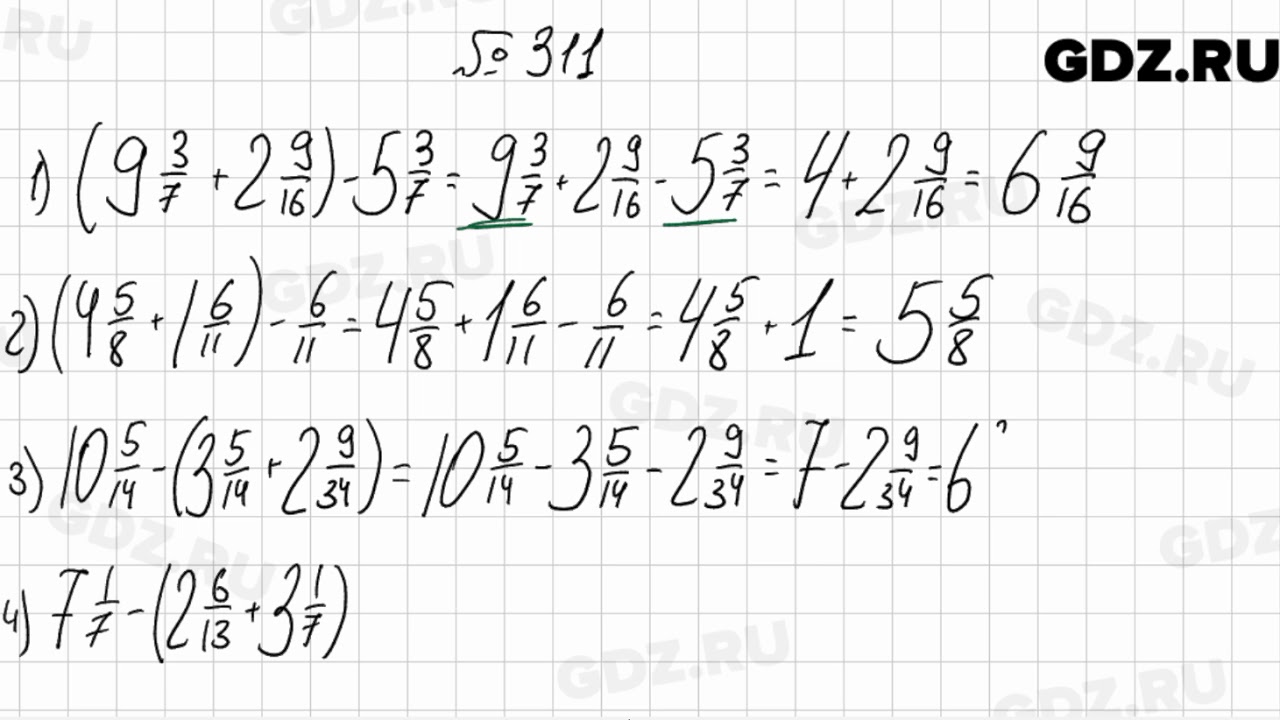 № 311
GDZ.RU
1) (9 3/7 + 2 9/16) - 5 3/7 = 9 3/7 + 2 9/16 - 5 3/7 = 4 + 2 9/16 = 6 9/16
2) (4 5/8 + 1 6/11) - 6/11 = 4 5/8 + 1 6/11 - 6/11 = 4 5/8 + 1 = 5 5/8
3) 10 5/14 - (3 5/14 + 2 9/34) = 10 5/14 - 3 5/14 - 2 9/34 = 7 - 2 9/34 = 6
4) 7 1/7 - (2 6/13 + 3 1/7)